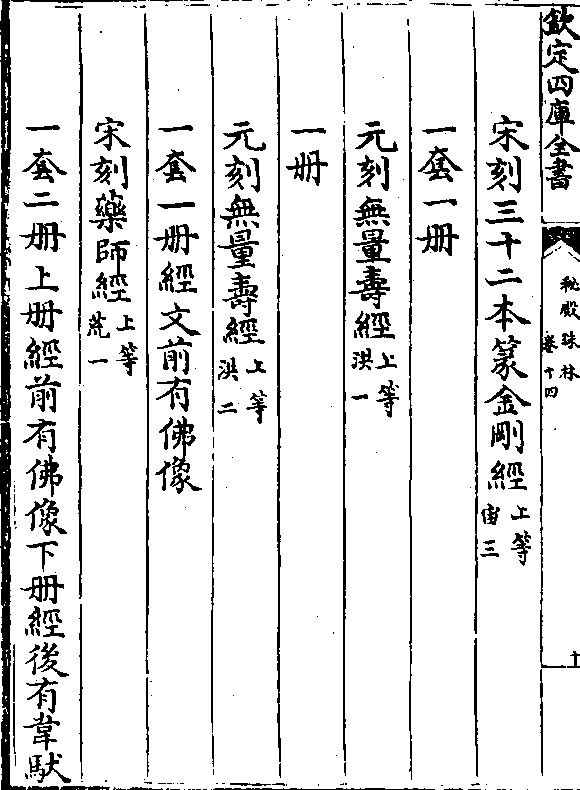 欽定四庫全書
秘殿珠林
卷十四
十
宋刻三十二本篆金剛經上等宙三
一套一册
元刻無量壽經上等洪一
一册
元刻無量壽經上等洪二
一套一册經文前有佛像
宋刻藥師經上等荒一
一套二册上册經前有佛像下册經後有韋馱